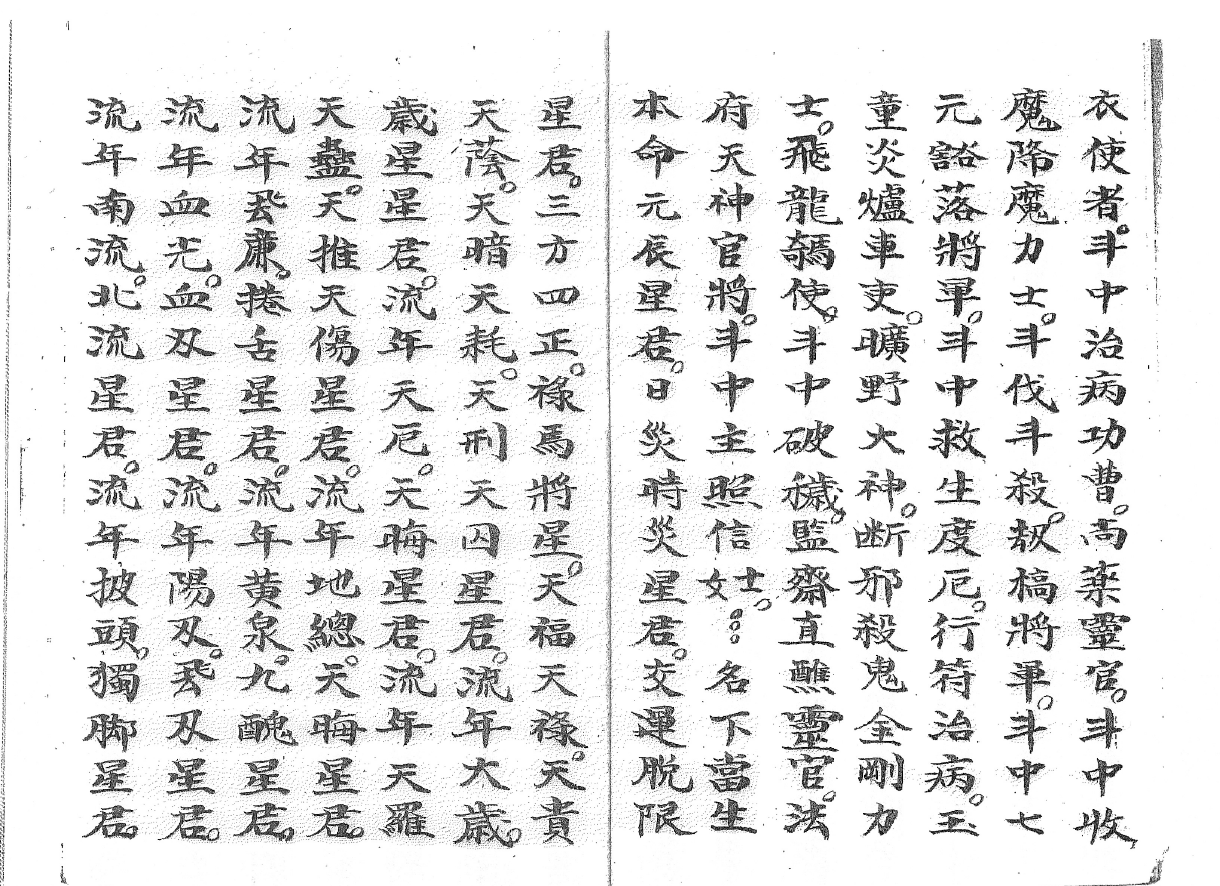 衣使者。斗中治病功曹。尚藥靈官。斗中收
魔降魔力士。斗伐斗殺。刼槁將軍。斗中七
元豁落將軍。斗中救生度厄。行符治病。玉
童炎爐車吏。曠野大神。断邪殺鬼金剛力
士。飛龍騎使。斗中破穢。監齋直醮靈官。法
府天神官將。斗中主照信士女。名下當生
本命元辰星君。日災時災星君。交運脫限
星君。三方四正。祿馬將星。天福天祿。天貴
天蔭。天暗天耗。天刑天囚星君。流年太歲。
歲星星君。流年天厄。天晦星君。流年天羅
天蠱。天推天傷星君。流年地總。天晦星君。
流年飛廉。捲舌星君。流年黃泉。九醜星君。
流年血光。血刃星君。流年陽刃。飛刃星君。
流年南流。北流星君。流年披頭。獨脚星君。